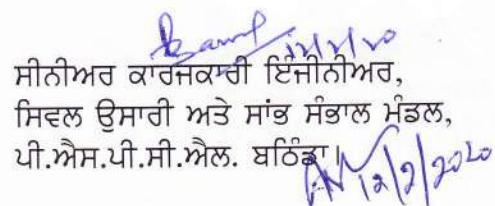 ਸੀਨੀਅਰ ਕਾਰਜਕਾਰੀ ਇੰਜੀਨੀਅਰ,
ਸਿਵਲ ਉਸਾਰੀ ਅਤੇ ਸਾਂਭ ਸੰਭਾਲ ਮੰਡਲ,
ਪੀ.ਐਸ.ਪੀ.ਸੀ.ਐਲ. ਬਠਿੰਡਾ।
12/2/2020